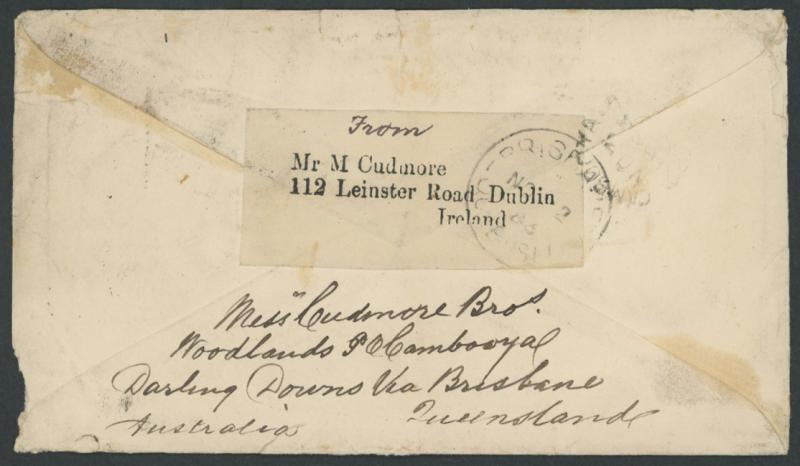 From
Mr M Cudmore
112 Leinster Road Dublin
Ireland
BRISBANE
Messrs Cudmore Bros.
Woodlands P O Cambooya
Darling Downs Via Brisbane
Queensland
Australia